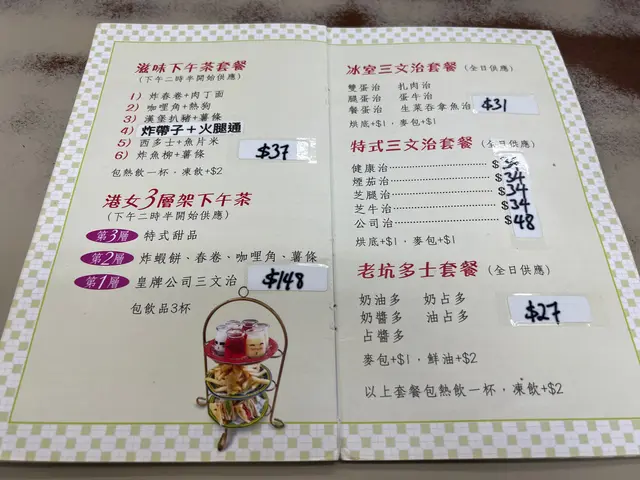 滋味下午茶套餐
(下午二時半開始供應)
1) 炸春卷+肉丁面
2) 咖哩角+熱狗
3) 漢堡扒豬+薯條
4) 炸帶子+火腿通
5) 西多士+魚片米
6) 炸魚柳+薯條
$37
包熱飲一杯，凍飲+$2
港女3層架下午茶
(下午二時半開始供應)
第3層 特式甜品
第2層 炸蝦餅、春卷、咖哩角、薯條
第1層 皇牌公司三文治 $148
包飲品3杯
冰室三文治套餐 (全日供應)
雙蛋治 扎肉治
腿蛋治 蛋牛治
餐蛋治 生菜吞拿魚治 $31
烘底+$1，麥包+$1
特式三文治套餐 (全日供應)
健康治 $34
煙茄治 $34
芝腿治 $34
芝牛治 $34
公司治 $48
烘底+$1，麥包+$1
老坑多士套餐 (全日供應)
奶油多 奶占多
奶醬多 油占多 $27
占醬多
麥包+$1，鮮油+$2
以上套餐包熱飲一杯，凍飲+$2